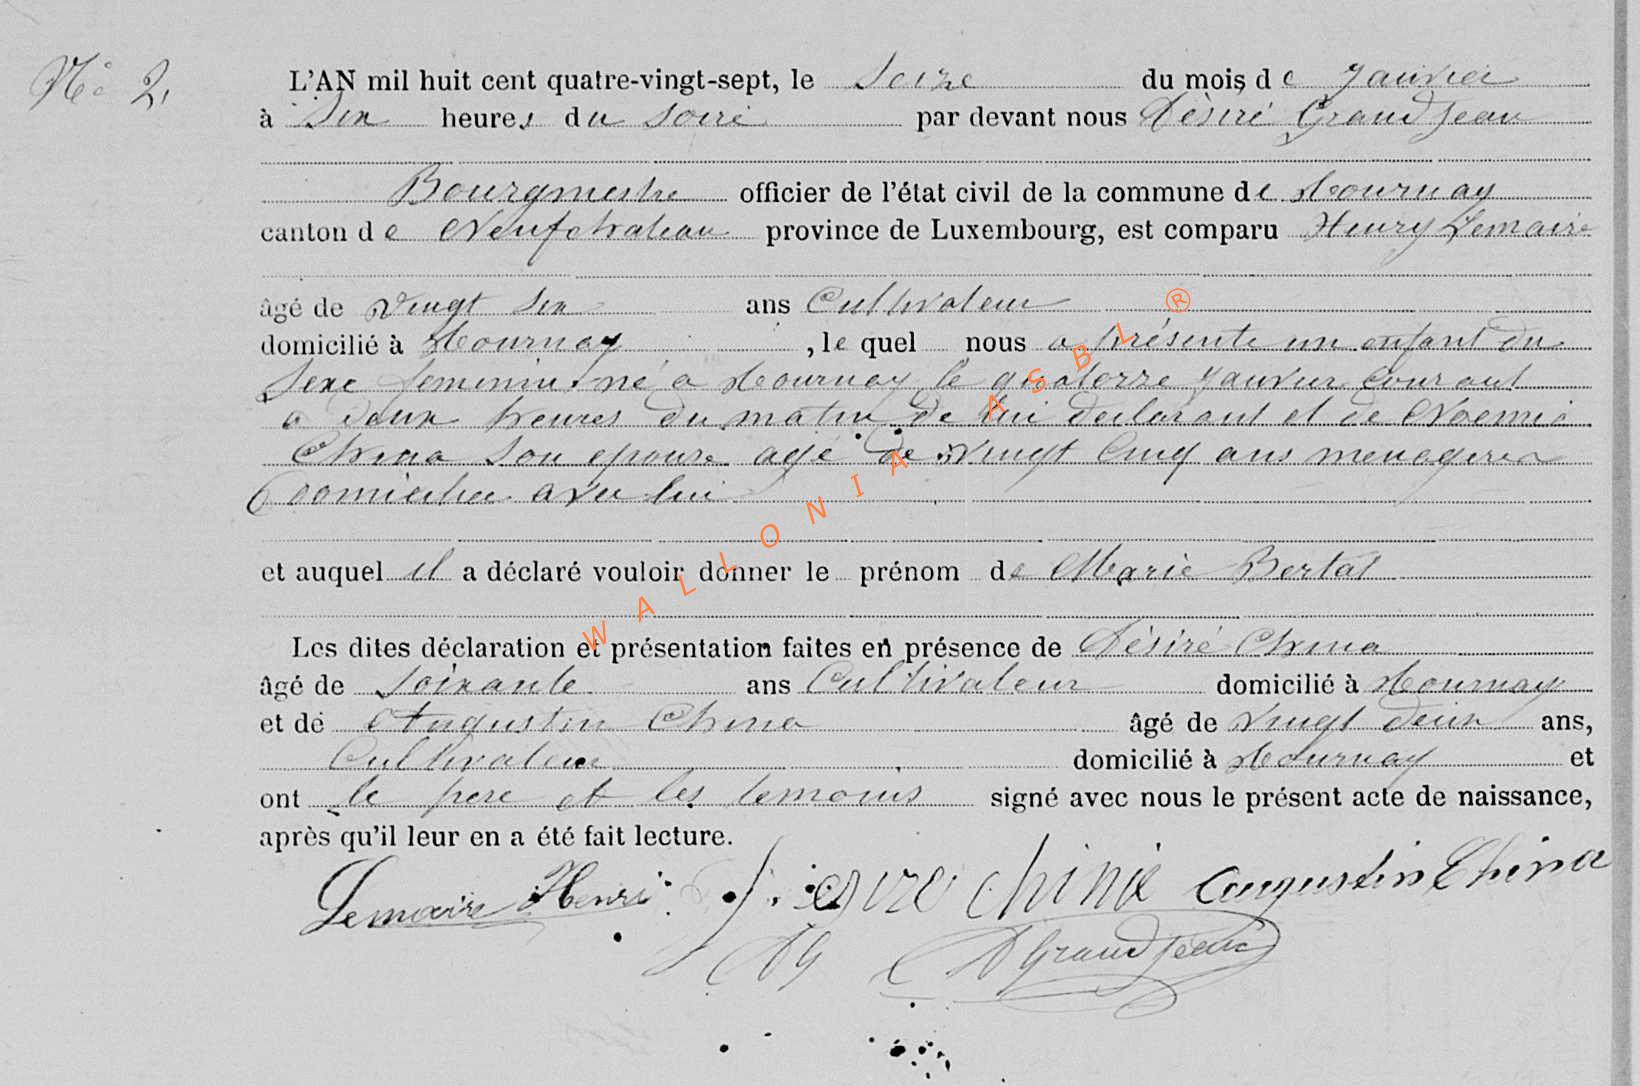 N° 2,
L'AN mil huit cent quatre-vingt-sept, le Seize du mois de Janvier
à Six heures du soire par devant nous Désiré Grandjean
Bourgmestre officier de l'état civil de la commune de Tournay
canton de Neufchateau province de Luxembourg, est comparu Henry Lemaire
âgé de Vingt Six ans Cultivateur
domicilié à Tournay, le quel nous a présenté un enfant du
Sexe feminin né a Tournay le quatorze Janvier Courant
a deux heures du matin de lui declarant et de Noemie
China Son epouse agé de Vingt Cinq ans menagere
domiciliee avec lui
et auquel il a déclaré vouloir donner le prénom de Marie Bertat
Les dites déclaration et présentation faites en présence de Désiré China
âgé de Soixante ans Cultivateur domicilié à Tournay
et de Augustin China âgé de Vingt deux ans,
Cultivateur domicilié à Tournay et
ont le pere et les temoins signé avec nous le présent acte de naissance,
après qu'il leur en a été fait lecture.
Lemaire Henri chinà augustin China
DG DGrandjean
WALLONIA ASBL ®